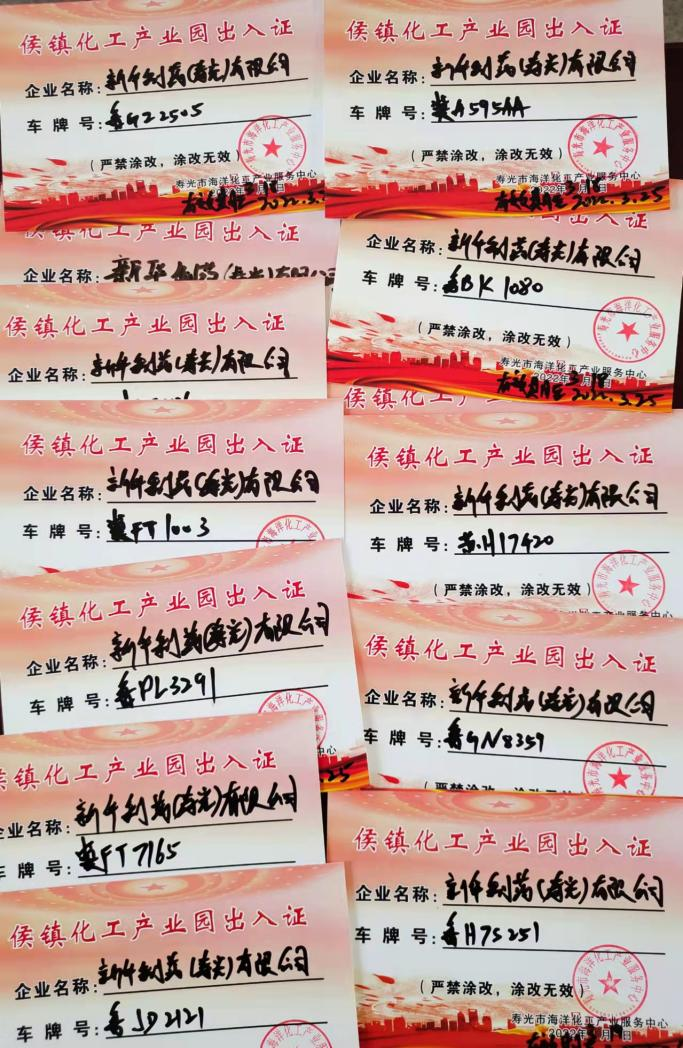 侯镇化工产业园出入证
企业名称:新华制药(寿光)有限公司
车牌号:鲁G22505
(严禁涂改,涂改无效)
寿光市海洋化工产业服务中心
有效期至2022.3.25
侯镇化工产业园出入证
企业名称:新华制药(寿光)有限公司
车牌号:冀A595AA
(严禁涂改,涂改无效)
寿光市海洋化工产业服务中心
有效期至2022.3.25
侯镇化工产业园出入证
新华制药(寿光)有限公司
企业名称:新华制药(寿光)有限公司
车牌号:鲁BK1080
(严禁涂改,涂改无效)
寿光市海洋化工产业服务中心
有效期至2022.3.25
侯镇化工产业园出入证
企业名称:新华制药(寿光)有限公司
侯镇化工产业园出入证
企业名称:新华制药(寿光)有限公司
车牌号:冀FT1003
侯镇化工产业园出入证
企业名称:新华制药(寿光)有限公司
车牌号:苏H17420
(严禁涂改,涂改无效)
侯镇化工产业园出入证
企业名称:新华制药(寿光)有限公司
车牌号:鲁PL3291
侯镇化工产业园出入证
企业名称:新华制药(寿光)有限公司
车牌号:鲁GN8359
侯镇化工产业园出入证
企业名称:新华制药(寿光)有限公司
车牌号:冀FT7165
侯镇化工产业园出入证
企业名称:新华制药(寿光)有限公司
车牌号:鲁H7S251
(严禁涂改,涂改无效)
寿光市海洋化工产业服务中心
侯镇化工产业园出入证
企业名称:新华制药(寿光)有限公司
车牌号:鲁JD2121